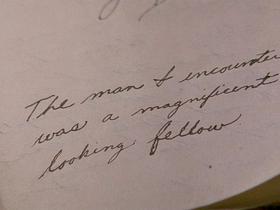 The man I encounter
was a magnificent
looking fellow